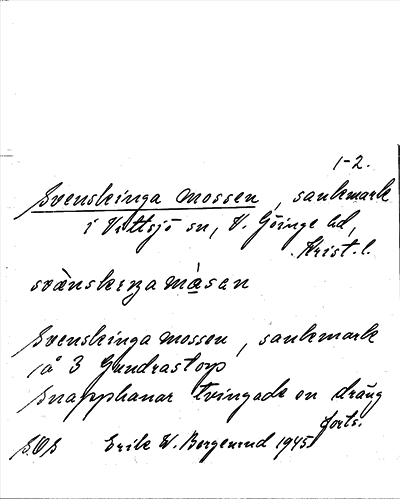 1-2.
Svenskinga mossen, sankmark
i Vittsjö sn, V. Göinge hd,
Krist. l.
svänskiŋa måsan
Svenskinga mossen, sankmark
på 3 Gundrastorp
Snapphanar tvingade en dräng
forts.
SOS Erik W. Borgenrud 1945